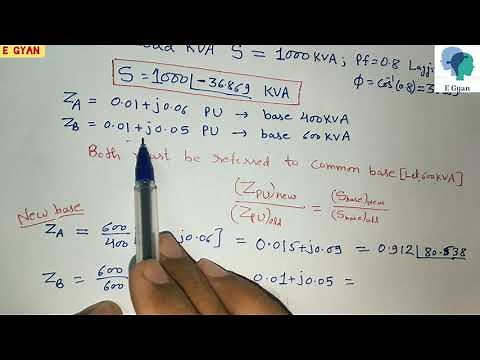 E GYAN
Load KVA S = 1000KVA ; Pf=0.8 Lagg
S = 1000∠-36.869 KVA
ϕ = cos⁻¹(0.8) = 3
E Gyan
Z_A = 0.01+j0.06 PU → base 400KVA
Z_B = 0.01+j0.05 PU → base 600KVA
Both must be referred to common base [Let 600KVA]
(Z_PU)new / (Z_PU)old = (S_base)new / (S_base)old
New base
Z_A = 600/400 [ j0.06] = 0.015+j0.09 = 0.912∠80.538
Z_B = 600/600 0.01+j0.05 =